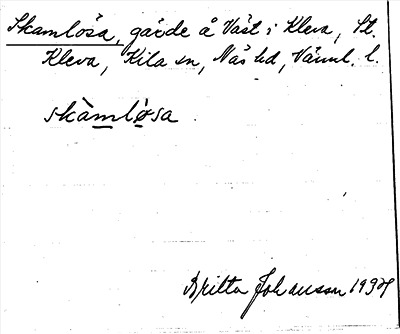 Skamlösa, gärde å Väst i Kleva, St.
Kleva, Kila sn, Näs hd, Värml. l.
skàmlø̀sa
Britta Johansson 1929